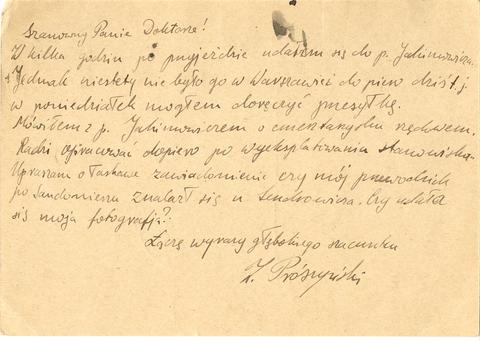 Szanowny Panie Doktorze!
W kilka godzin po przyjeździe udałem się do p. Jakimowicza.
Jednak niestety nie było go w Warszawie i dopiero dziś t.j.
w poniedziałek mogłem doręczyć przesyłkę.
Mówiłem z p. Jakimowiczem o cmentarzysku rzędowem.
Radzi opracować dopiero po wyeksploatowaniu stanowiska.
Upraszam o łaskawe zawiadomienie czy mój przewodnik
po Sandomierzu znalazł się u Sendrowicza. Czy udała
się moja fotografja?
Łączę wyrazy głębokiego szacunku
Z. Prószyński